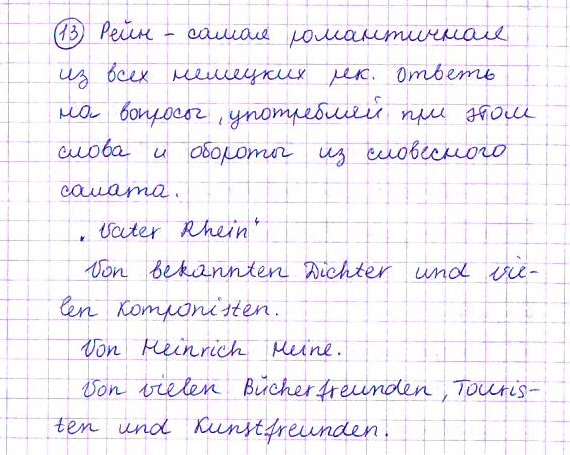 13 Рейн – самая романтичная
из всех немецких рек. Ответь
на вопросы, употребляй при этом
слова и обороты из словесного
салата.
„Vater Rhein“
Von bekannten Dichter und vie-
len Komponisten.
Von Heinrich Heine.
Von vielen Bücherfreunden, Touris-
ten und Kunstfreunden.